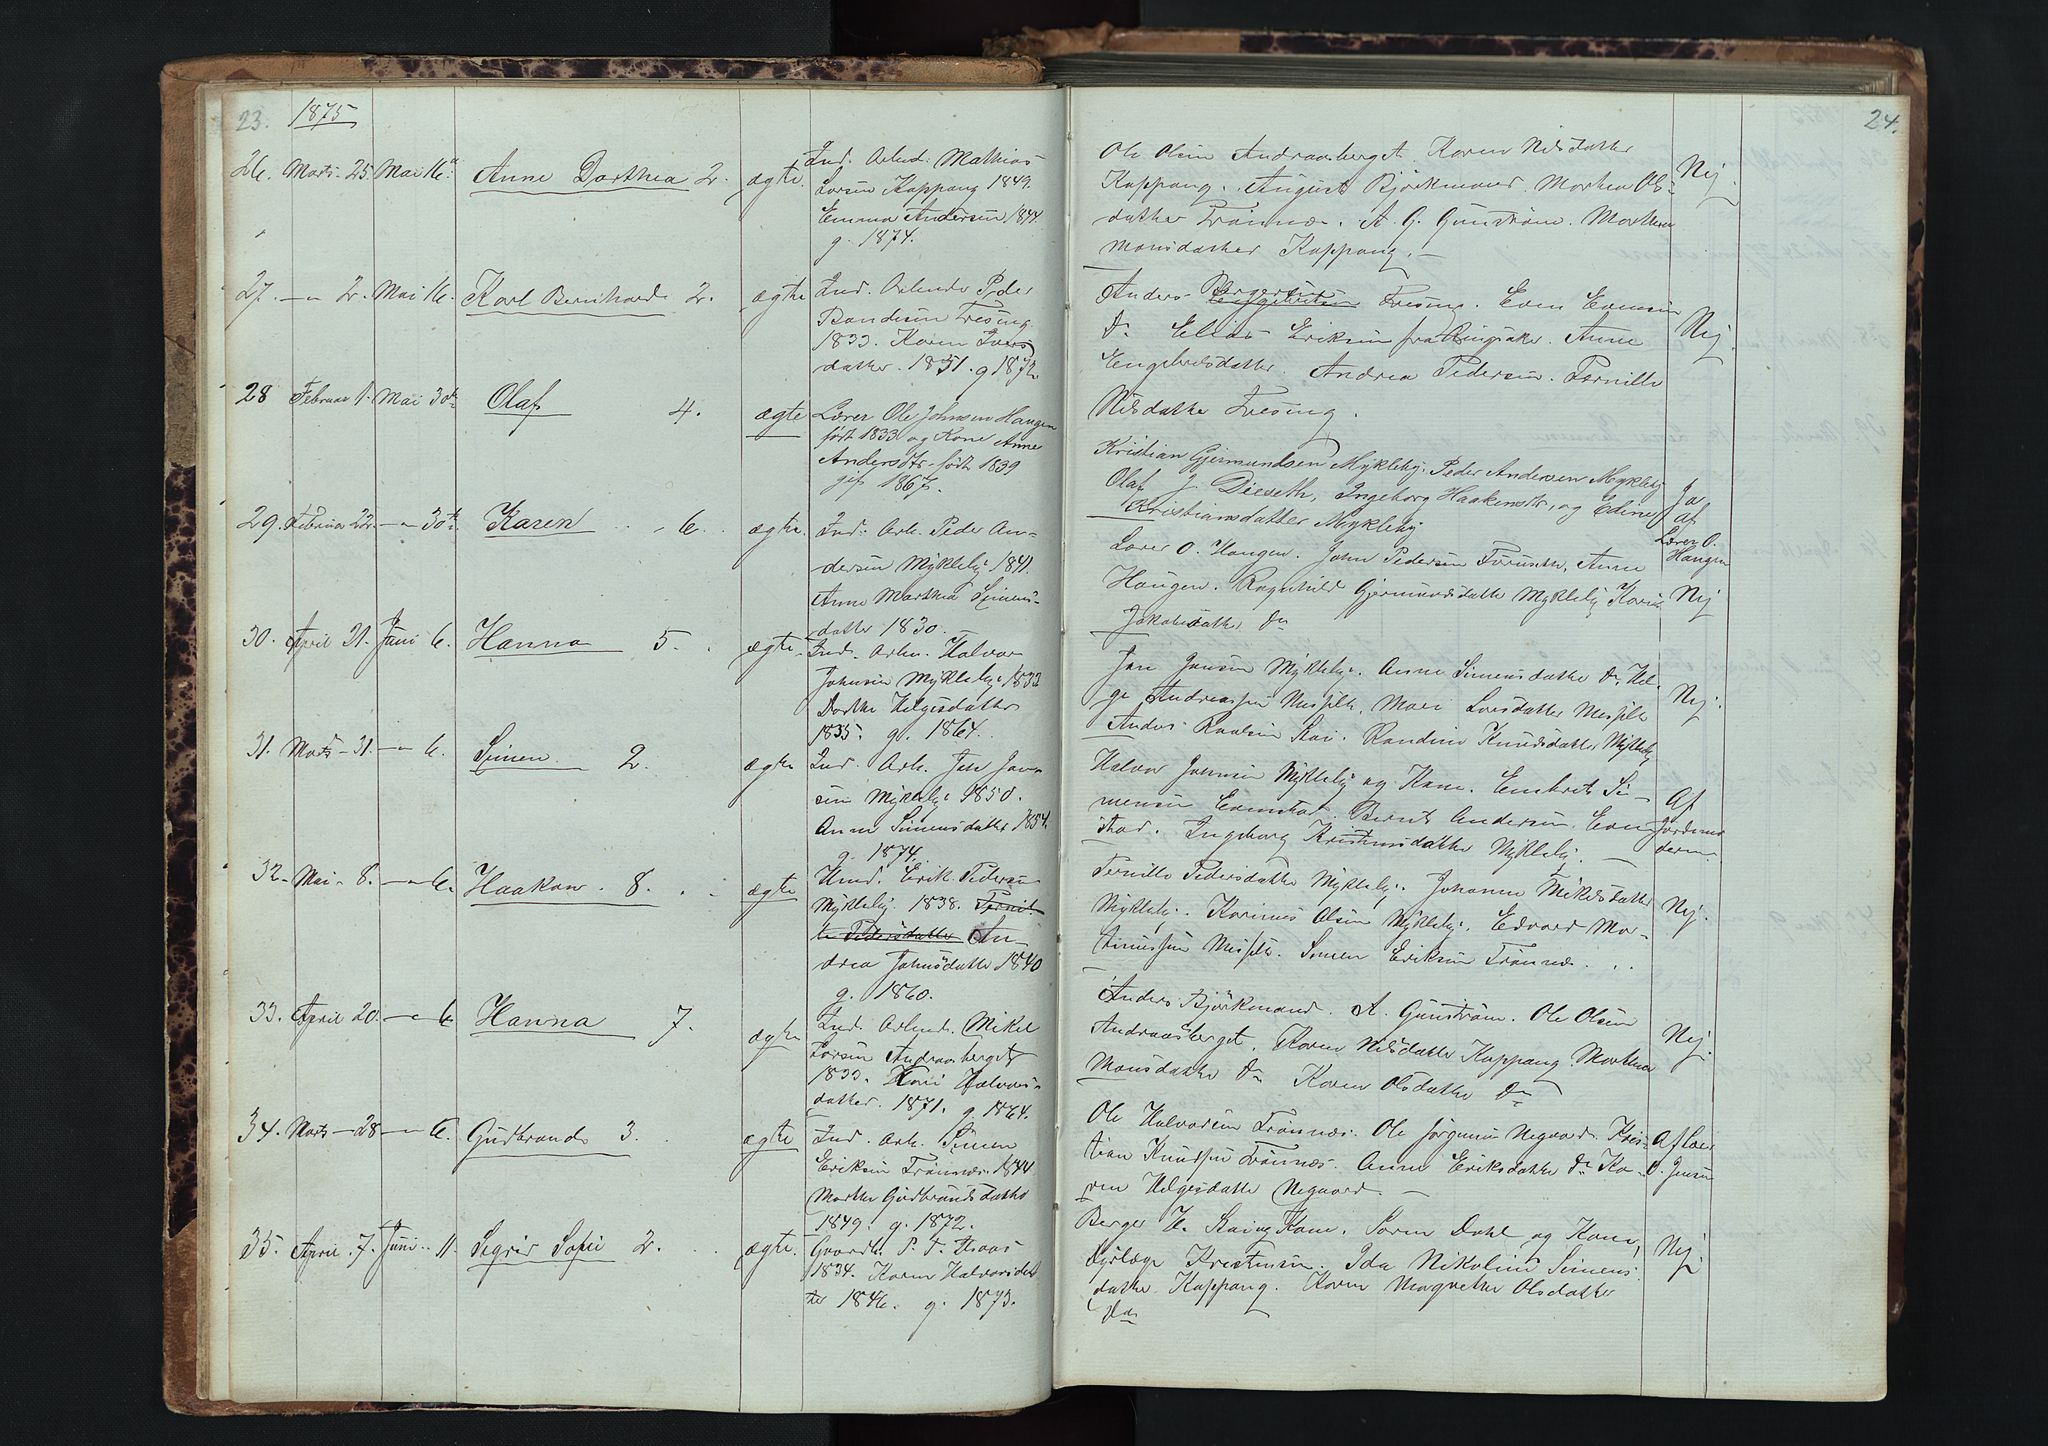 23. 1875
26. Marts 25. Mai 16. Anne Dorthea 2. ægte. Ind. Arbeid. Mathias
Larsen Koppang 1849.
Emma Andersen 1844
g. 1874.
27. — " 2. Mai 16. Karl Bernhard 2. ægte Ind. Arbeider Peder
Bendesen Tresing
1833. Karen Ivers
datter. 1851. g 1872
28 Februar 1. Mai 30te Olaf 4. ægte Lærer Ole Johnsen Haugen
født 1833 og Kone Anne
Andersdtr. født 1839
gift 1867.
29. Februar 22. — " 30te Karen 6. ægte. Ind. Arb. Peder An-
dersen Mykleby 1841.
Anne Marthea Simens-
datter 1830.
30. April 21. Juni 6. Hanna 5. ægte. Ind. Arb. Halvor
Johnsen Mykleby 1833
Dorthe Helgesdatter
1835. g. 1864.
31. Marts 31. — " 6. Simen 2. ægte Ind. Arb. Jon Jon-
sen Mykleby 1850.
Anne Simensdatter 1854.
g. 1874.
32. Mai 8. — " 6. Haakon 8. ægte Husd. Erik Pedersen
Mykleby 1838. Pernil-
le Pedersdatter An-
drea Johnsdatter 1840
g. 1860.
33. April 20. — " 6. Hanna 7. ægte Ind. Arbeid. Mikel
Larsen Andraasberget
1833. Kari Halvors-
datter. 1871. g. 1864.
34. Marts 28 — " 6. Gudbrand 3. ægte Ind. Arb. Simen
Eriksen Trønnæs. 1844
Marthe Gudbrandsdatter
1849. g. 1872.
35. April 7. Juni 11. Sigrid Sofie 2. ægte. Gaardb. P. T. Haas
1834. Karen Halvorsdat
ter 1846. g. 1873.
24.
Ole Olsen Andraasberget. Karen Nilsdatter
Koppang. August Bjørkmand. Marthea Ols-
datter Trønnæs. A. G. Gunstrøm. Marthea
Monsdatter Koppang. — Nej.
Anders Bergersen Tresing. Even Evensen
Do Elias Eriksen fra Ringsaker. Anne
Engebretsdatter. Andrea Pedersen. Pernille
Nilsdatter Tresing. Nej.
Kristian Gjermundsen Mykleby. Peder Andersen Mykleby
Olaf J. Dieseth, Ingeborg Haakensdtr., og Edine
Kristiansdatter Mykleby Ja af Lærer O. Haugen
Lærer O. Haugen. John Pedersen, Anne
Haugen. Ragnhild Gjermundsdatter Mykleby Kari
Jakobsdatter Do Nej
Jon Jonsen Mykleby. Anne Simensdatter Do Hel-
ge Andreassen Messelt. Mari Larsdatter Messelt
Anders Paalsen Stai. Randine Knudsdatter Mykleby Nej.
Halvor Johnsen Mykleby og Kone. Embret Si-
mensen Evenstad. Bernt Andersen Even-
stad. Ingeborg Kristensdatter Mykleby. — Af Jordemo
deren.
Pernille Pedersdatter Mykleby. Johanne Mikelsdatter
Mykleby. Karinus Olsen Mykleby. Edvard Mor-
tinussen Messelt. Simen Eriksen Trønnæs. Nej.
Anders Bjørkmand. A. Gunstrøm. Ole Olsen
Andraasberget. Karen Nilsdatter Koppang. Marthea
Monsdatter Do Karen Olsdatter Do Nej.
Ole Halvorsen Trønnæs. Ole Jørgensen Negaard. Kris-
tian Knudsen Trønnæs. Anne Eriksdatter Do Ka-
ren Helgesdatter Negaard. — Af Lær
O. Jensen
Berger H. Stai og Kone. Søren Dahl og Kone,
Dyrlæge Kristensen. Ida Nikoline Simens-
datter Koppang. Karen Magrethe Olsdatter
Do Nej.